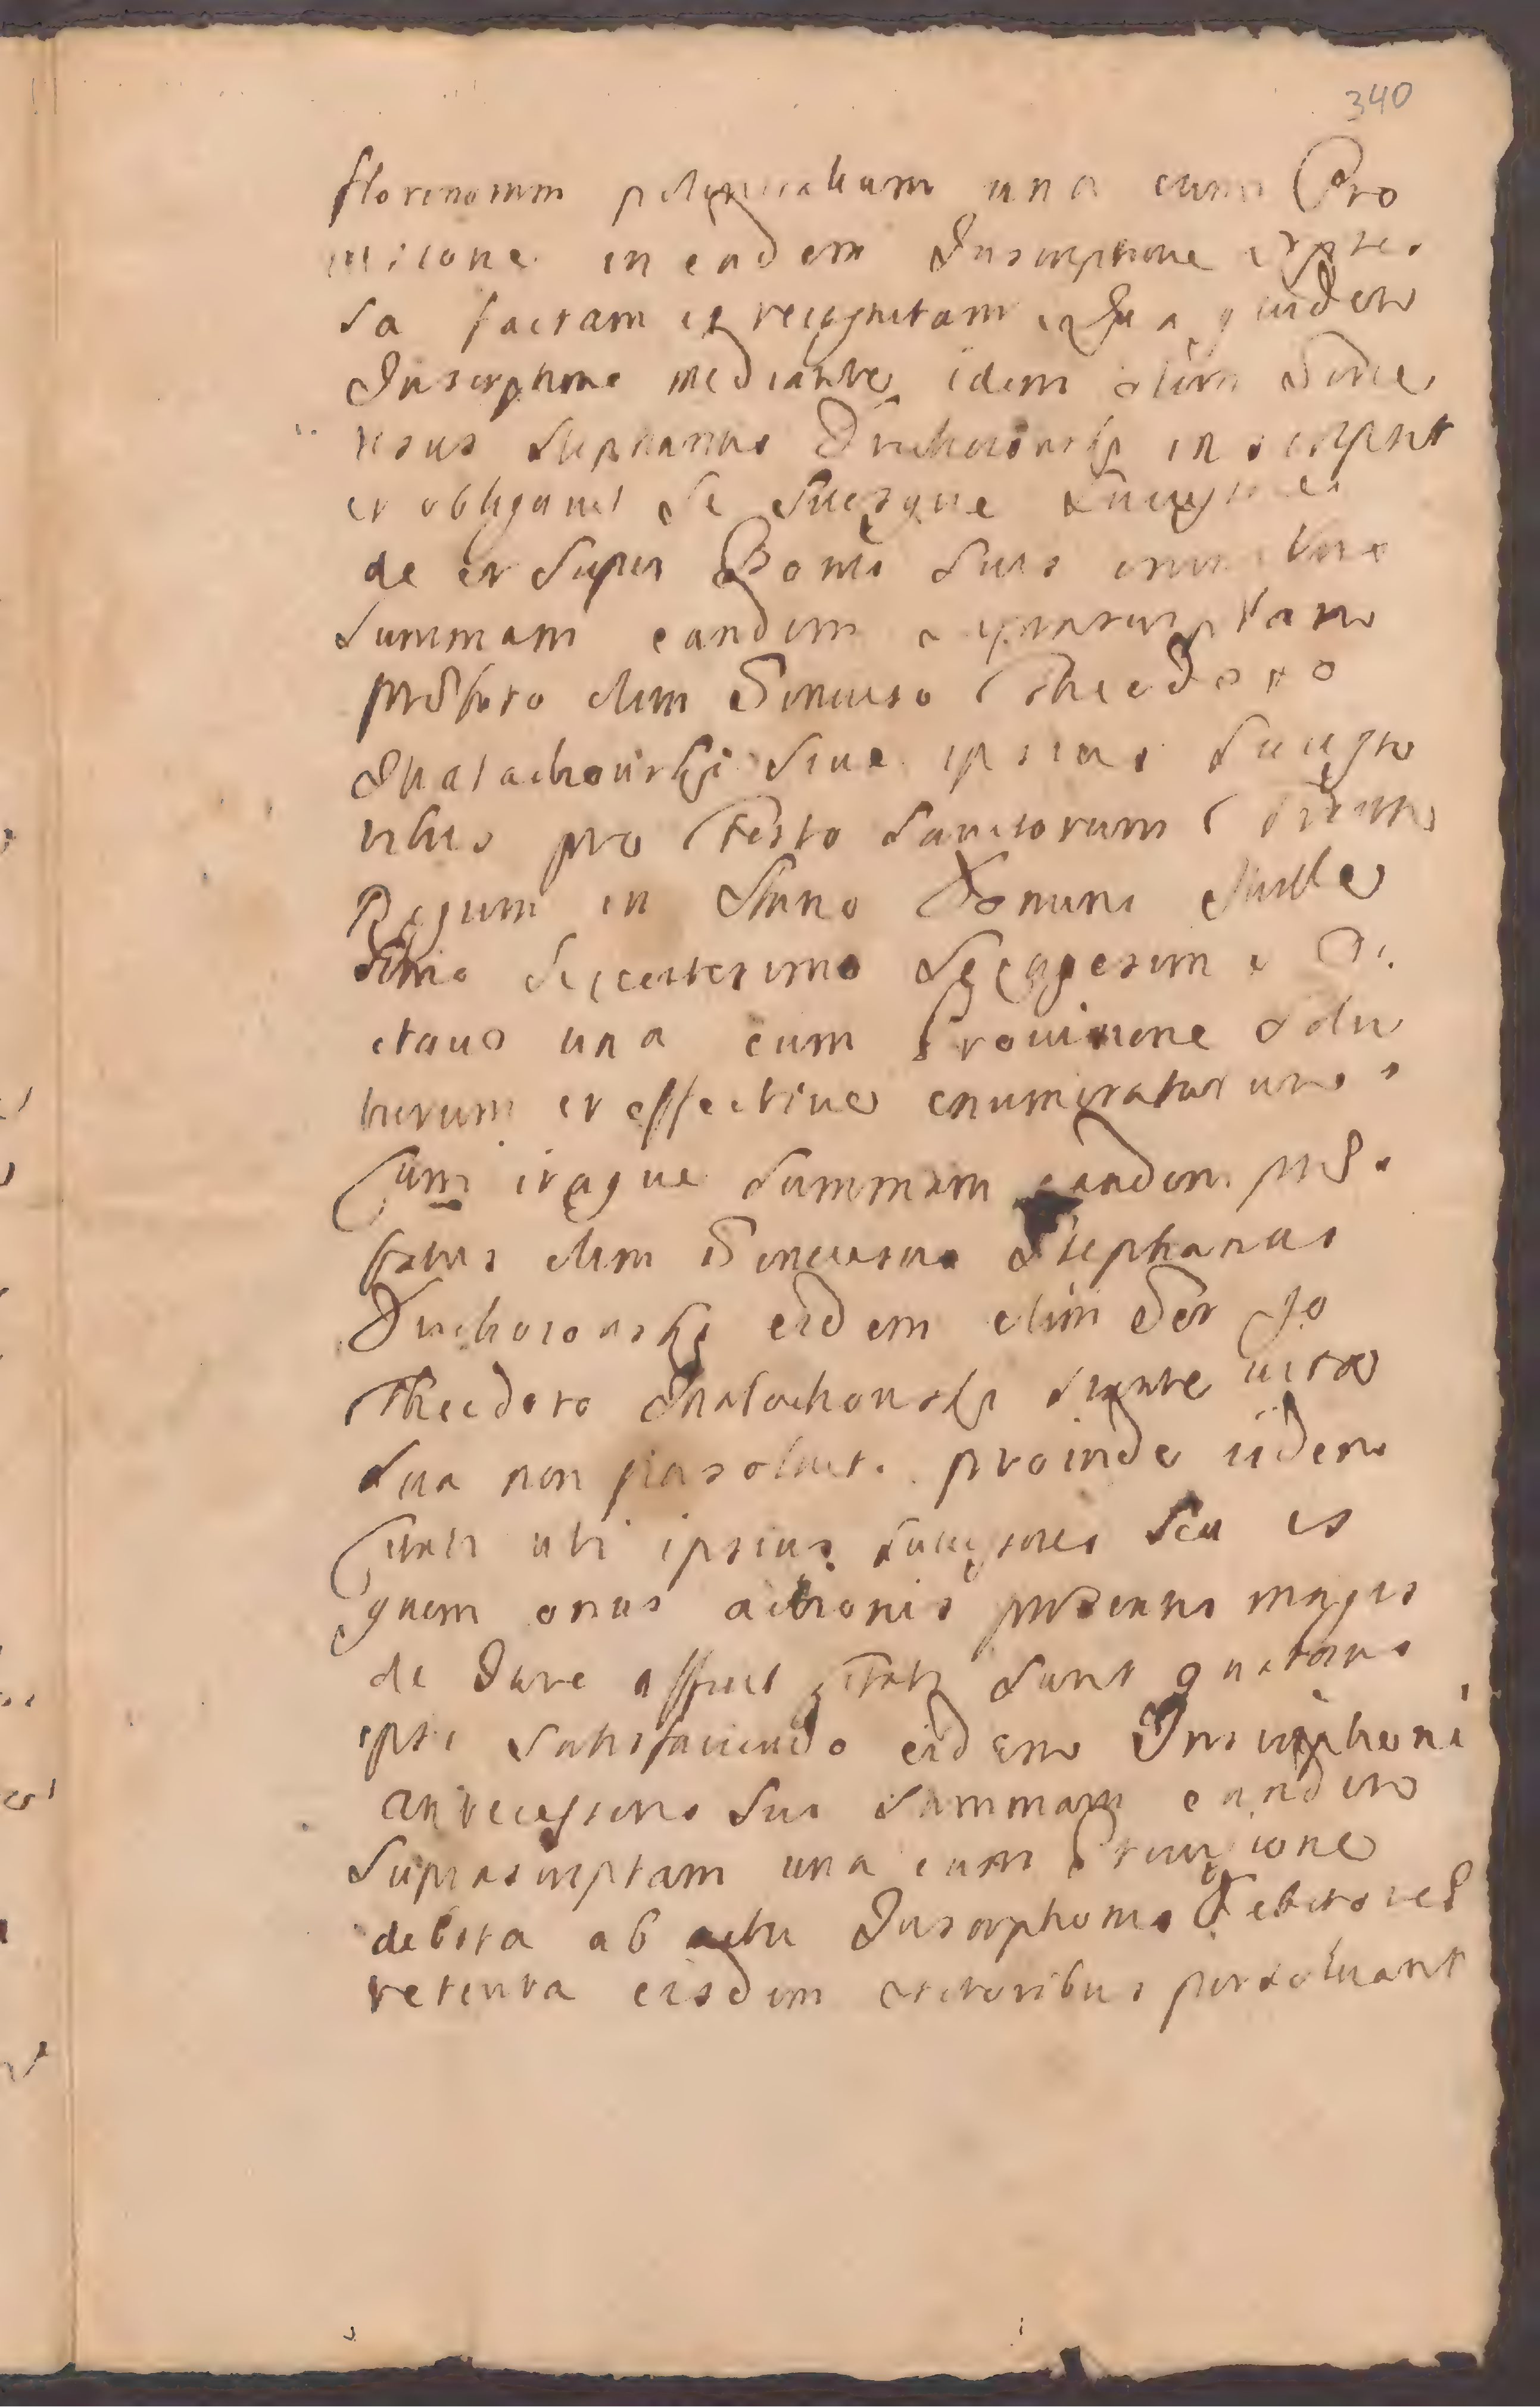 340
florenorum polonicalium una cum Pro
uisione in eadem Inscriptione expres
sa factam et recognitam Qua quidem
Inscriptione mediante idem olim Gene
rosus Stephanus inscripsit
et obligauit se suosque successores
de et super Bonis suis omnibus
summam eandem suprascriptam
prefato olim Generoso Theodoro
Malachowski siue ipsius successo
ribus pro Festo Sanctorum Trium
Regum in Anno Domini Mille
simo Sexcentesimo Sexagesimo O
ctauo una cum Prouisione solu
turum et effectiue enumeraturum
Cum itaque summam eandem pre
fatus olim Generosus Stephanus
eidem olim Gñso
Theodoro Malachowski durante uita
sua non persoluit. proinde iidem
Citati uti ipsius successores seu is
quem onus actionis presentis magis
de Jure afficit citati sunt quatenus
ipsi satisfaciendo eidem Inscriptioni
antecessoris sui summam eandem
suprascriptam una cum Prouisione
debita ab actu Inscriptionis Debitores
retenta eisdem actoribus persoluant